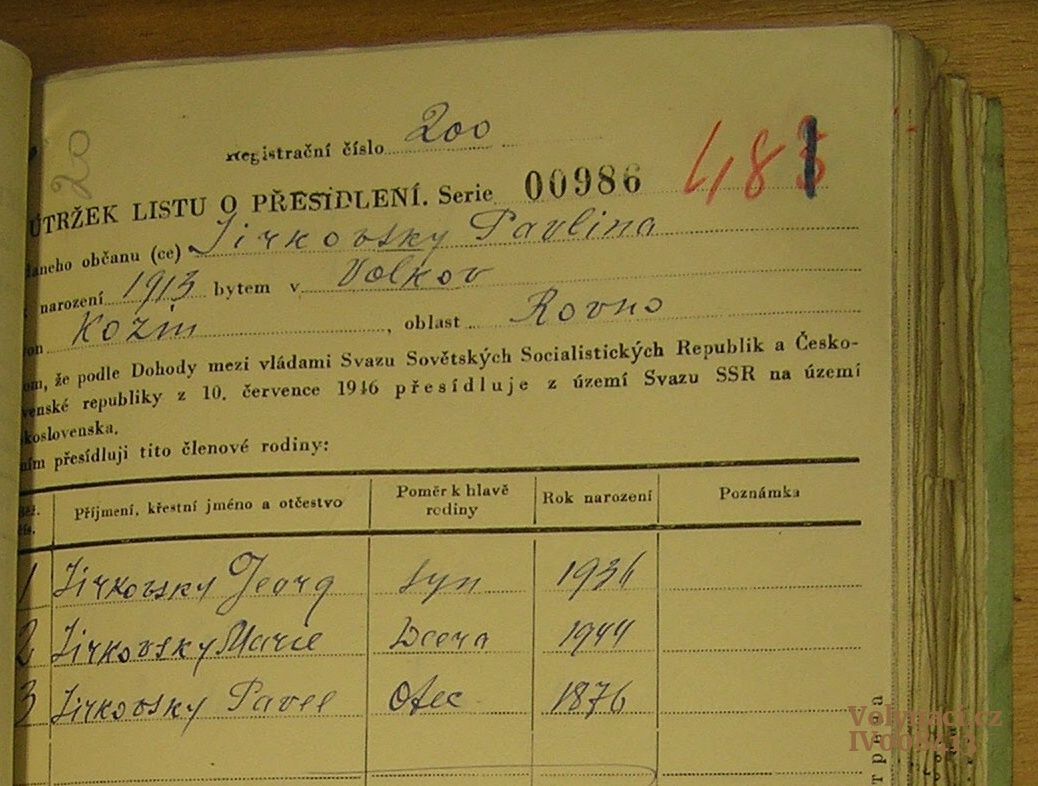 20
registrační číslo 200
483
ÚTRŽEK LISTU O PŘESÍDLENÍ. Serie 00986
daneho občanu (ce) Jirkovsky Pavlina
narození 1913 bytem v Volkov
on Kozin, oblast Rovno
om, že podle Dohody mezi vládami Svazu Sovětských Socialistických Republik a Česko-
venské republiky z 10. července 1946 přesídluje z území Svazu SSR na území
koslovenska.
ním přesídluji tito členové rodiny:
čís. Příjmení, křestní jméno a otčestvo Poměr k hlavě rodiny Rok narození Poznámka
1 Jirkovsky Georg syn 1936
2 Jirkovsky Marie Dcera 1944
3 Jirkovsky Pavel Otec 1876
Volynaci.cz